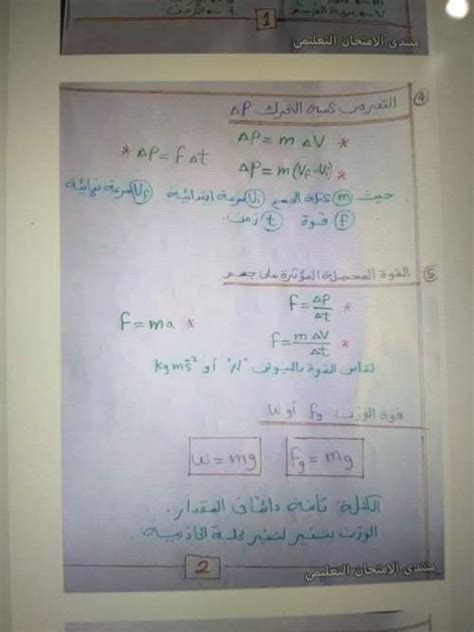 1
منتدى الامتحان التعليمي
④ التغير في كمية التحرك ΔP
* ΔP = m ΔV
* ΔP = f Δt
* ΔP = m(Vf - Vi)
حيث m كتلة الجسم Vi سرعة ابتدائية Vf سرعة نهائية
f قوة t زمن.
⑤ القوة المحصلة المؤثرة على جسم
* f = ΔP/Δt
* F = ma
* f = m ΔV/Δt
تقاس القوة بالنيوتن "N" أو kg m s⁻²
قوة الوزن fg أو w
w = mg
Fg = mg
الكتلة: ثابتة دائماً في المقدار.
الوزن يتغير لتغير عجلة الجاذبية.
2
منتدى الامتحان التعليمي